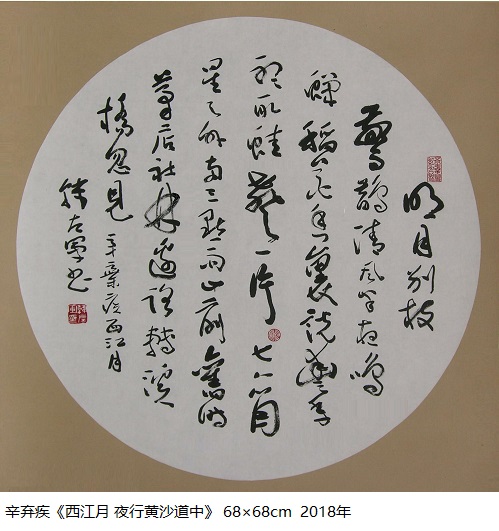 明月别枝
驚鵲清风半夜鳴
蟬稻花香裏说豐年
听取蛙聲一片七八个
星天外兩三點雨山前舊時
茅店社林邊路轉溪
橋忽見 辛棄疾西江月
书
辛弃疾《西江月 夜行黄沙道中》 68×68cm 2018年